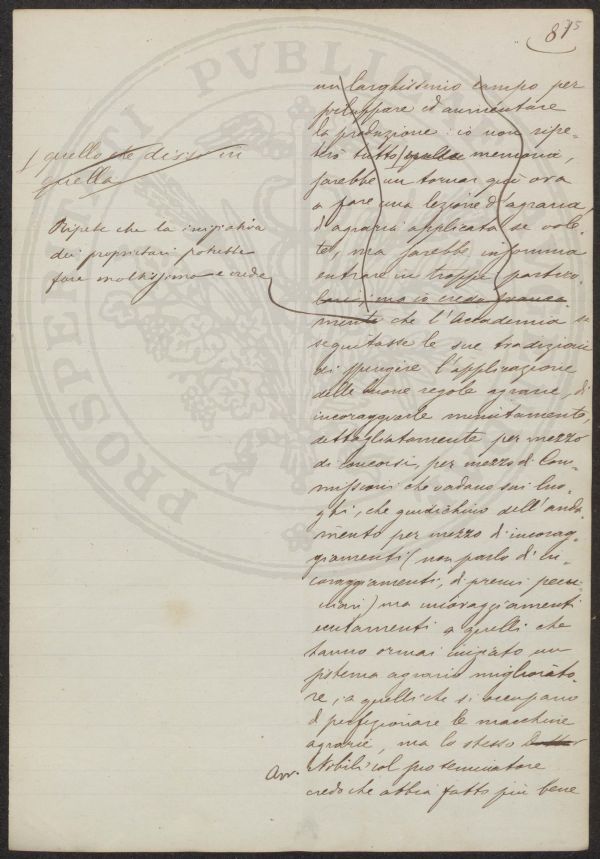 815
un larghissimo campo per
sviluppare ed aumentare
la produzione: io non ripe-
terò tutto quella memoria,
sarebbe un tornar qui ora
a fare una lezione d'agraria,
d'agraria applicata se vole-
te, ma sarebbe insomma
entrare in troppi partico-
lari, ma io credo franca-
mente che l'Accademia se
seguitasse le sue tradizioni
di spingere l'applicazione
delle buone regole agrarie, di
incoraggiarle minutamente,
dettagliatamente per mezzo
di concorsi, per mezzo di Com-
missioni che vadano sui luo-
ghi, che giudichino dell'anda-
mento per mezzo di incorag-
giamenti (non parlo di in-
coraggiamenti, di premi pecu-
niari) ma incoraggiamenti
eccitamenti a quelli che
hanno ormai iniziato un
sistema agrario migliorato-
re, a quelli che si occupano
di perfezionare le macchine
agrarie, ma lo stesso Dottor
Avv. Nobili col suo
credo che abbia fatto più bene
quello che disse in
quella
Ripete che la iniziativa
dei proprietari potrebbe
fare moltissimo e crede
PROSPERITATI PVBLICAE